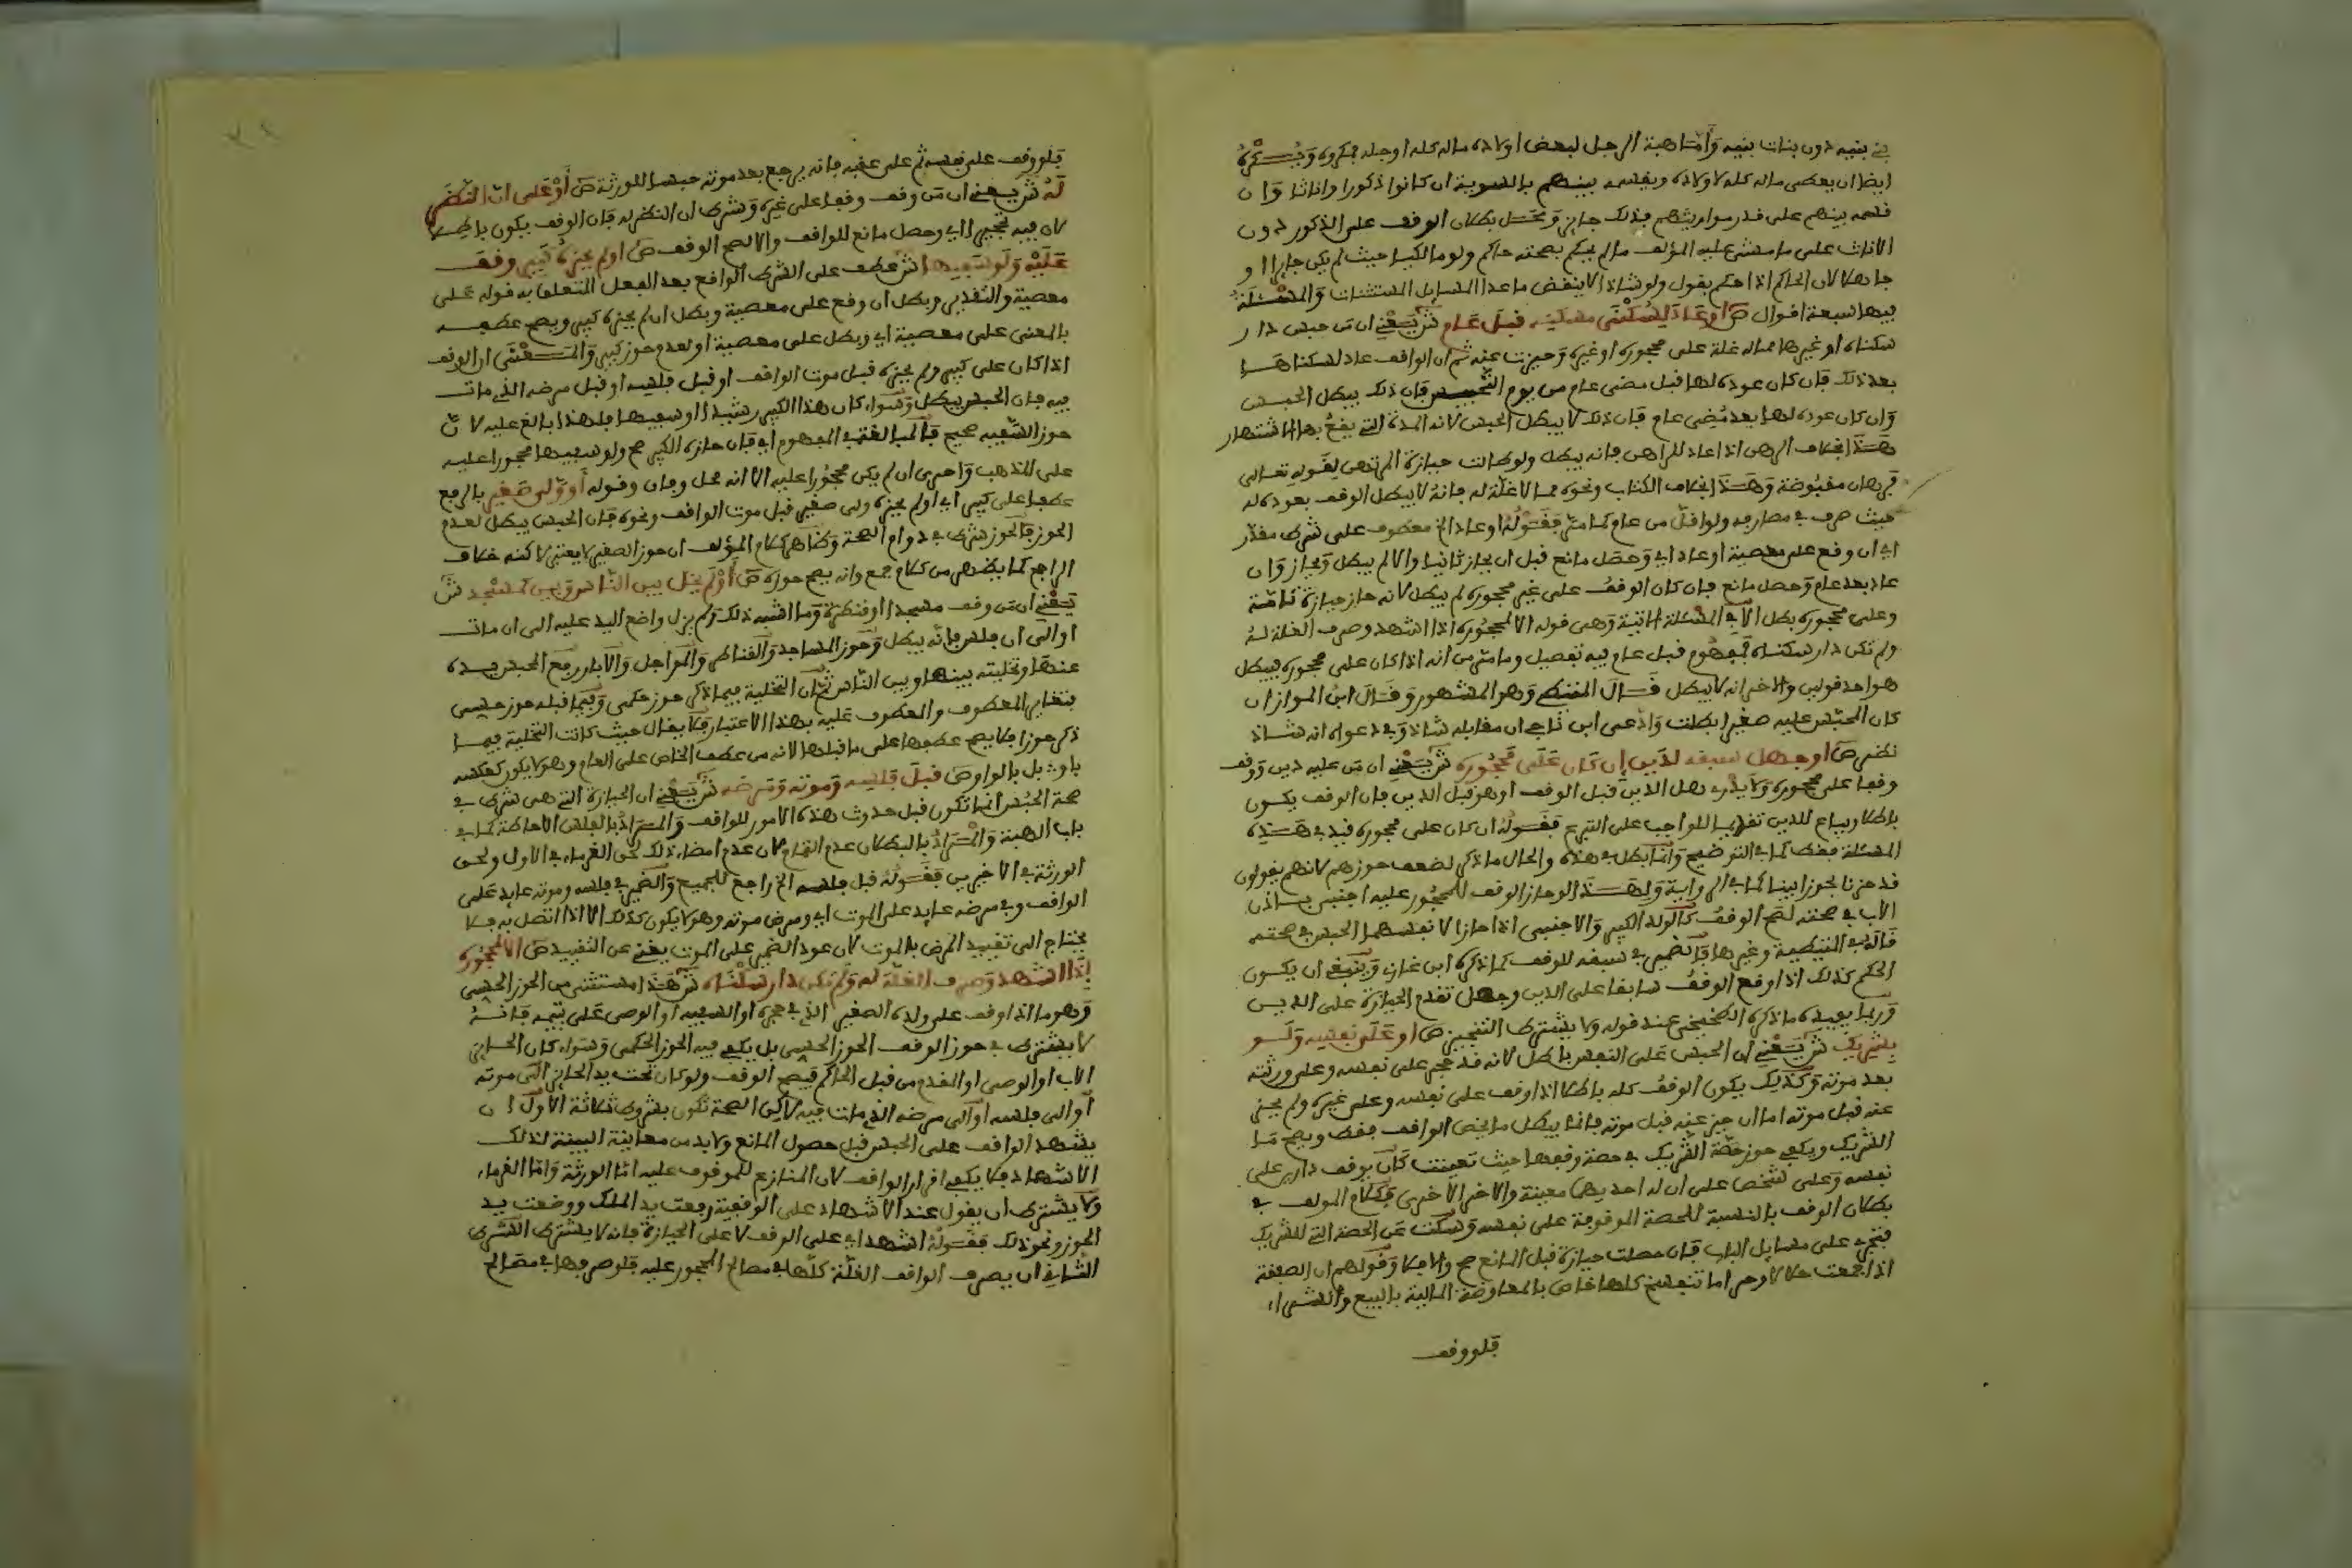 بني بنيه دون بنات بنيه وأما هبة الرجل لبعض أولاده ماله كله أو جله فمكروه ويكره
أيضا أن يعطي ماله كله لأولاده ويقسمه بينهم بالسوية إن كانوا ذكورا وإناثا وإن
قسمه بينهم على قدر مواريثهم فذلك جائز ومحل بطلان الوقف على الذكور دون
الإناث على ما مشى عليه المؤلف ما لم يحكم بصحته حاكم ولو مالكيا حيث لم يكن جائرا أو
جاهلا لأن الحاكم إذا حكم بقول ولو شاذا لا ينقض ما عدا المسايل المستثنات والمسئلة
فيها سبعة أقوال ص أو عاد لسكنى مسكنه قبل عام ش يعني أن من حبس دار
سكناه أو غيرها مما له غلة على محجوره أو غيره وحيزت عنه ثم إن الواقف عاد لسكناها
بعد ذلك فإن كان عوده لها قبل مضي عام من يوم التحبيس فإن ذلك يبطل الحبس
وإن كان عوده لها بعد مضي عام فإن ذلك لا يبطل الحبس لأنه المدة التي يقع بها الاشتهار
هذا بخلاف الرهن إذا عاد للراهن فإنه يبطل ولو طالت حيازة المرتهن لقوله تعالى
فرهان مقبوضة وهذا بخلاف الكتاب ونحوه مما لا غلة له فإنه لا يبطل الوقف بعوده له
حيث صرف في مصارفه ولو أقل من عام كما مر فقوله أو عاد الخ معطوف على شرط مقدر
أي إن وقع على معصية أو عاد أي وحصل مانع قبل أن يحاز ثانيا وإلا لم يبطل ويحاز وإن
عاد بعد عام وحصل مانع فإن كان الوقف على غير محجوره لم يبطل لأنه حاز حيازة تامة
وعلى محجوره بطل إلا في المسئلة الآتية وهي قوله إلا لمحجوره إذا أشهد وصرف الغلة له
ولم تكن دار سكناه فمفهوم قبل عام فيه تفصيل وما مر من أنه إذا كان على محجوره يبطل
هو أحد قولين والآخر أنه لا يبطل قال المتيطي وهو المشهور وقال ابن المواز إن
كان المحبس عليه صغيرا بطلت وادعى ابن ناجي أن مقابله شاذ وفي دعواه أنه شاذ
نظر ص أو جهل سبقه لدين إن كان على محجوره ش يعني أن من عليه دين ووقف
وقفا على محجوره ولا يدرى هل الدين قبل الوقف أو هو قبل الدين فإن الوقف يكون
باطلا ويباع للدين تقديما للواجب على التبرع فقوله إن كان على محجوره قيد في هذه
المسئلة فقط كما في التوضيح وإنما بطل في هذه والحال ما ذكر لضعف حوزهم لأنهم يقولون
قد حزنا بحوز أبينا كما في الرواية ولهذا لو حاز الوقف للمحجور عليه أجنبي بإذن
الأب في صحته لصح الوقف كالولد الكبير والأجنبي إذا حازا لأنفسهما الحبس في صحته
قاله في المتيطية وغيرها فالضمير في سبقه للوقف كما ذكره ابن غازي وينبغي أن يكون
الحكم كذلك إذا وقع الوقف سابقا على الدين وجهل تقدم الحيازة على الدين
وربما يفيده ما ذكره الطخيخي عند قوله ولا يشترط التنجيز ص أو على نفسه ولو
بشريك ش يعني أن الحبس على النفس باطل لأنه قد حجر على نفسه وعلى ورثته
بعد موته وكذلك يكون الوقف كله باطلا إذا وقف على نفسه وعلى غيره ولم يحز
عنه قبل موته أما إن حيز عنه قبل موته فإنما يبطل ما يخص الواقف فقط ويصح ما
للشريك ويكفي حوز حصة الشريك في صحة وقفها حيث تعينت كأن يوقف دارين على
نفسه وعلى شخص على أن له إحديهما معينة والآخر الأخرى فكلام المؤلف في
بطلان الوقف بالنسبة للحصة الموقوفة على نفسه وسكت عن الحصة التي للشريك
فتجري على مسايل الباب فإن حصلت حيازة قبل المانع صح وإلا فلا وقولهم إن الصفقة
إذا جمعت حلالا وحراما تبطل كلها خاص بالمعاوضة المالية بالبيع والشراء
فلو وقف
فلو وقف على نفسه ثم على عقبه فإنه يرجع بعد موته حبسا للورثة ص أو على أن النظر
له ش يعني أن من وقف وقفا على غيره وشرط أن النظر له فإن الوقف يكون باطلا
لأن فيه تحجيرا أي وحصل مانع للواقف وإلا لصح الوقف ص أو لم يحزه كبير وقف
عليه ولو سفيها ش عطف على الشرط الواقع بعد الفعل المتعلق به قوله على
معصية والتقدير وبطل إن وقع على معصية وبطل إن لم يحزه كبير ويصح عطفه
بالمعنى على معصية أي وبطل على معصية أو لعدم حوز كبير والمعنى أن الوقف
إذا كان على كبير ولم يحزه قبل موت الواقف أو قبل فلسه أو قبل مرضه الذي مات
فيه فإن الحبس يبطل وسواء كان هذا الكبير رشيدا أو سفيها فلهذا بالغ عليه لأن
حوز السفيه صحيح فالمبالغة في المفهوم أي فإن حازه الكبير صح ولو سفيها محجورا عليه
على المذهب وأحرى إن لم يكن محجورا عليه إلا أنه محل وفاق وقوله أو ولي صغير بالرفع
عطفا على كبير أي أو لم يحزه ولي صغير قبل موت الواقف ونحوه فإن الحبس يبطل لعدم
الحوز فالحوز شرط في دوام الصحة وظاهر كلام المؤلف أن حوز الصغير لا يعتبر لاكنه خلاف
الراجح كما يظهر من كلام جمع وأنه يصح حوزه ص أو لم يخل بين الناس وبين كمسجد ش
يعني أن من وقف مسجدا أو قنطرة وما أشبه ذلك ولم يزل واضع اليد عليه إلى أن مات
أو إلى أن فلس فإنه يبطل وحوز المساجد والقناطر والمواجل والآبار رفع المحبس يده
عنها وتخليته بينها وبين الناس ثم إن التخلية فيما ذكر حوز حكمي وفيما قبله حوز حسي
فتغاير المعطوف والمعطوف عليه بهذا الاعتبار فلا يقال حيث كانت التخلية فيما
ذكر حوزا فلا يصح عطفها على ما قبلها لأنه من عطف الخاص على العام وهو لا يكون كعكسه
بأو بل بالواو ص قبل فلسه وموته ومرضه ش يعني أن الحيازة التي هي شرط في
صحة الحبس إنما تكون قبل حدوث هذه الأمور للواقف والمراد بالفلس الإحاطة كما في
باب الهبة والمراد بالبطلان عدم التمام لأن عدم إمضاء ذلك لحق الغرماء في الأول ولحق
الورثة في الأخيرين فقوله قبل فلسه الخ راجع للجميع والضمير في فلسه وموته عايد على
الواقف وفي مرضه عايد على الموت أي ومرض موته وهو لا يكون كذلك إلا إذا اتصل به فلا
يحتاج إلى تقييد المرض بالموت لأن عود الضمير على الموت يغني عن التقييد ص إلا لمحجوره
إذا أشهد وصرف الغلة له ولم تكن دار سكناه ش هذا مستثنى من الحوز الحسي
وهو ما إذا وقف على ولده الصغير الذي في حجره أو السفيه أو الوصي على يتيمه فإنه
لا يشترط في حوز الوقف الحوز الحسي بل يكفي فيه الحوز الحكمي وسواء كان الحائز
الأب أو الوصي أو المقدم من قبل الحاكم فيصح الوقف ولو كان تحت يد الحائز إلى موته
أو إلى فلسه أو إلى مرضه الذي مات فيه لاكن الصحة تكون بشروط ثلاثة الأول أن
يشهد الواقف على الحبس قبل حصول المانع ولا بد من معاينة البينة لذلك
الإشهاد فلا يكفي إقرار الواقف لأن المنازع للموقوف عليه إما الورثة وإما الغرماء
ولا يشترط أن يقول عند الإشهاد على الوقفية رفعت يد الملك ووضعت يد
الحوز ونحو ذلك فقوله أشهد أي على الوقف لا على الحيازة فإنه لا يشترط الشرط
الثاني أن يصرف الواقف الغلة كلها في مصالح المحجور عليه فلو صرفها في مصالح